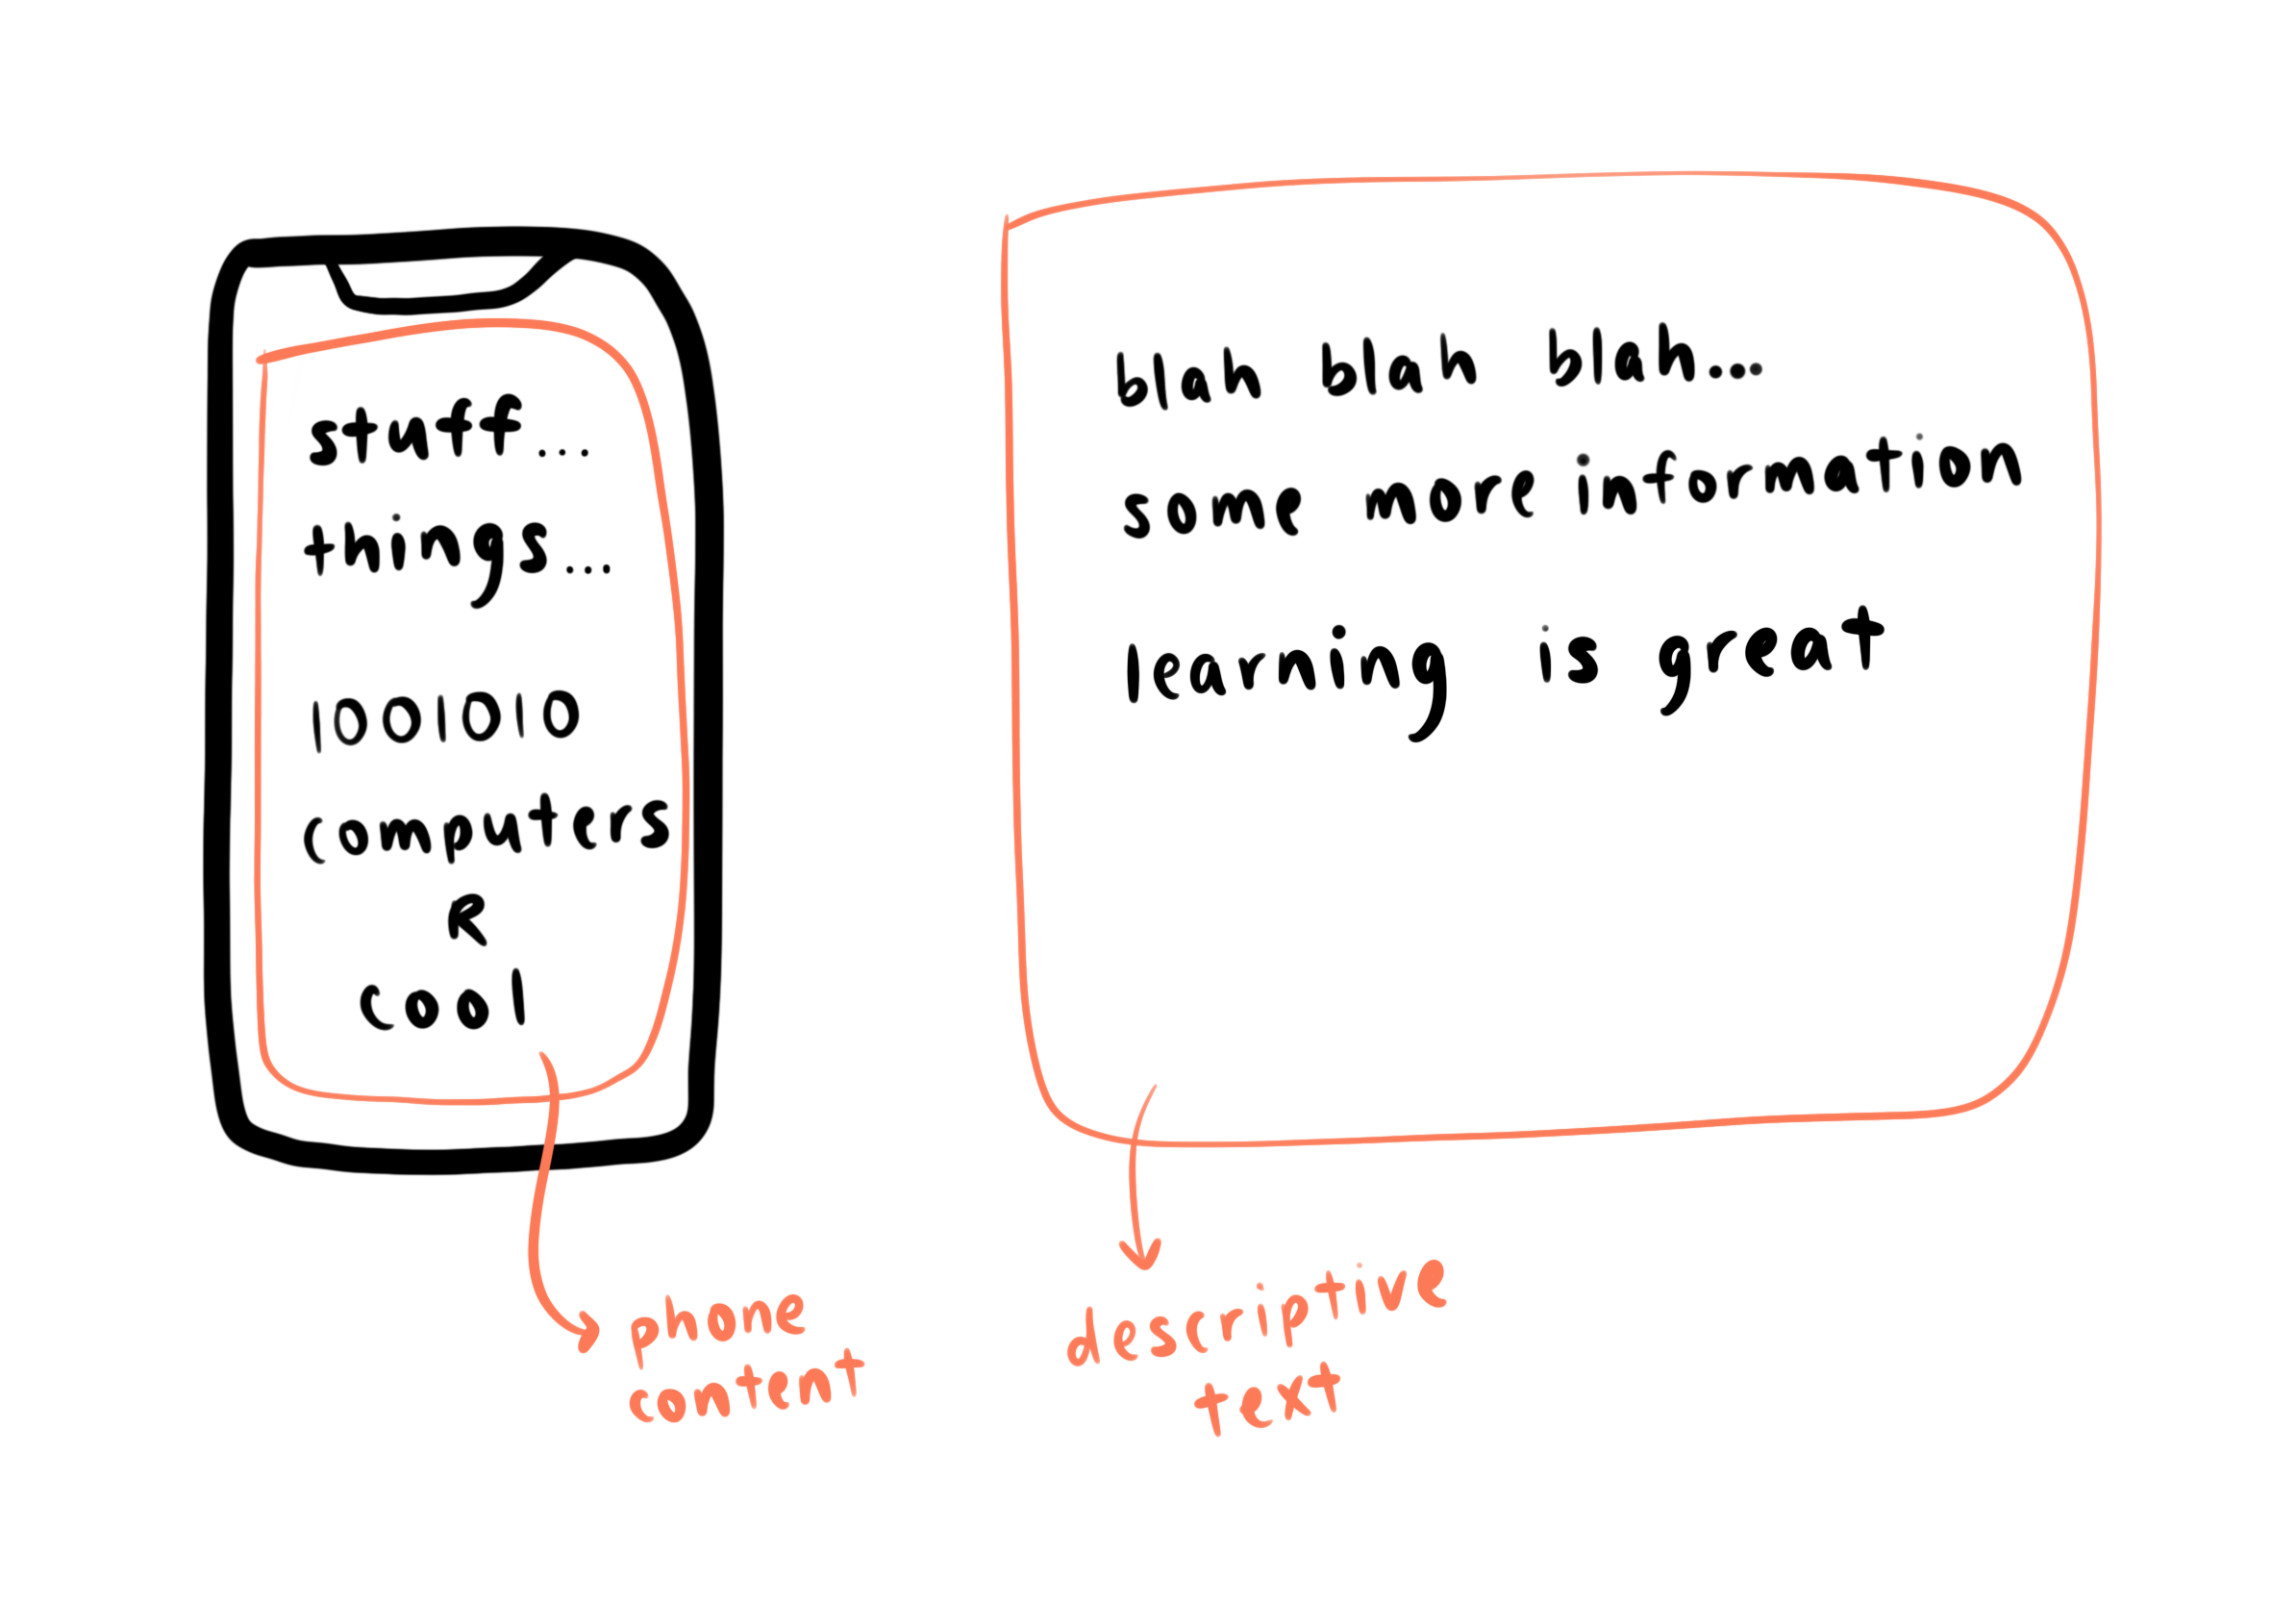 stuff...
things...
1001010
computers
R
cool
blah blah blah...
some more information
learning is great
phone
content
descriptive
text